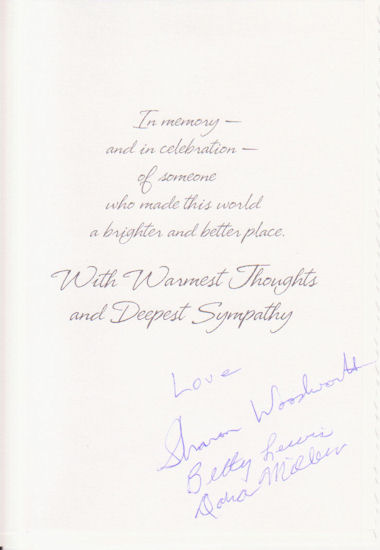 In memory —
and in celebration —
of someone
who made this world
a brighter and better place.
With Warmest Thoughts
and Deepest Sympathy
Love
Sharon Woodworth
Betty Lewis
Dora